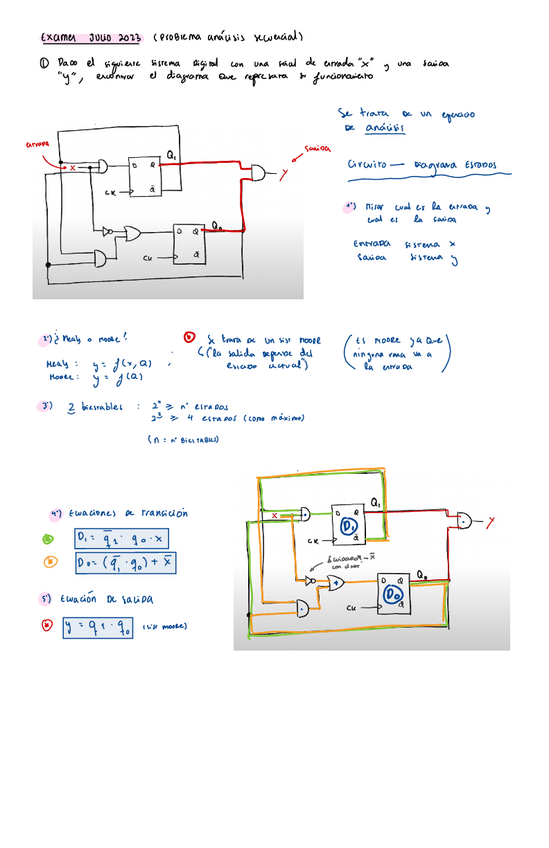 Examen Julio 2023 (Problema análisis secuencial)
① Dado el siguiente sistema digital con una señal de entrada "x" y una salida
"y", encontrar el diagrama que representa su funcionamiento
Se trata de un ejercicio
de análisis
Circuito — Diagrama Estados
1º) Mirar cual es la entrada y
cual es la salida
Entrada sistema x
Salida sistema y
entrada
x
D Q
Q1
CK
Q̄
salida
y
D Q
Q0
CK
Q̄
2º) ¿Mealy o Moore?
Mealy: y = f(x, Q) ;
Moore: y = f(Q)
Se trata de un sist Moore
(la salida depende del
estado actual)
(Es Moore ya que
ninguna rama va a
la entrada)
3º) 2 biestables : 2ⁿ ≥ nº estados
2² ≥ 4 estados (como máximo)
(n = nº biestables)
4º) Ecuaciones de transición
D1 = q̄1 · q0 · x
D0 = (q̄1 · q0) + x̄
5º) Ecuación de salida
y = q1 · q0 (sist Moore)
x
D Q
Q1
D1
CK
Q̄
¡cuidado! → x̄
y
D Q
Q0
D0
CK
Q̄